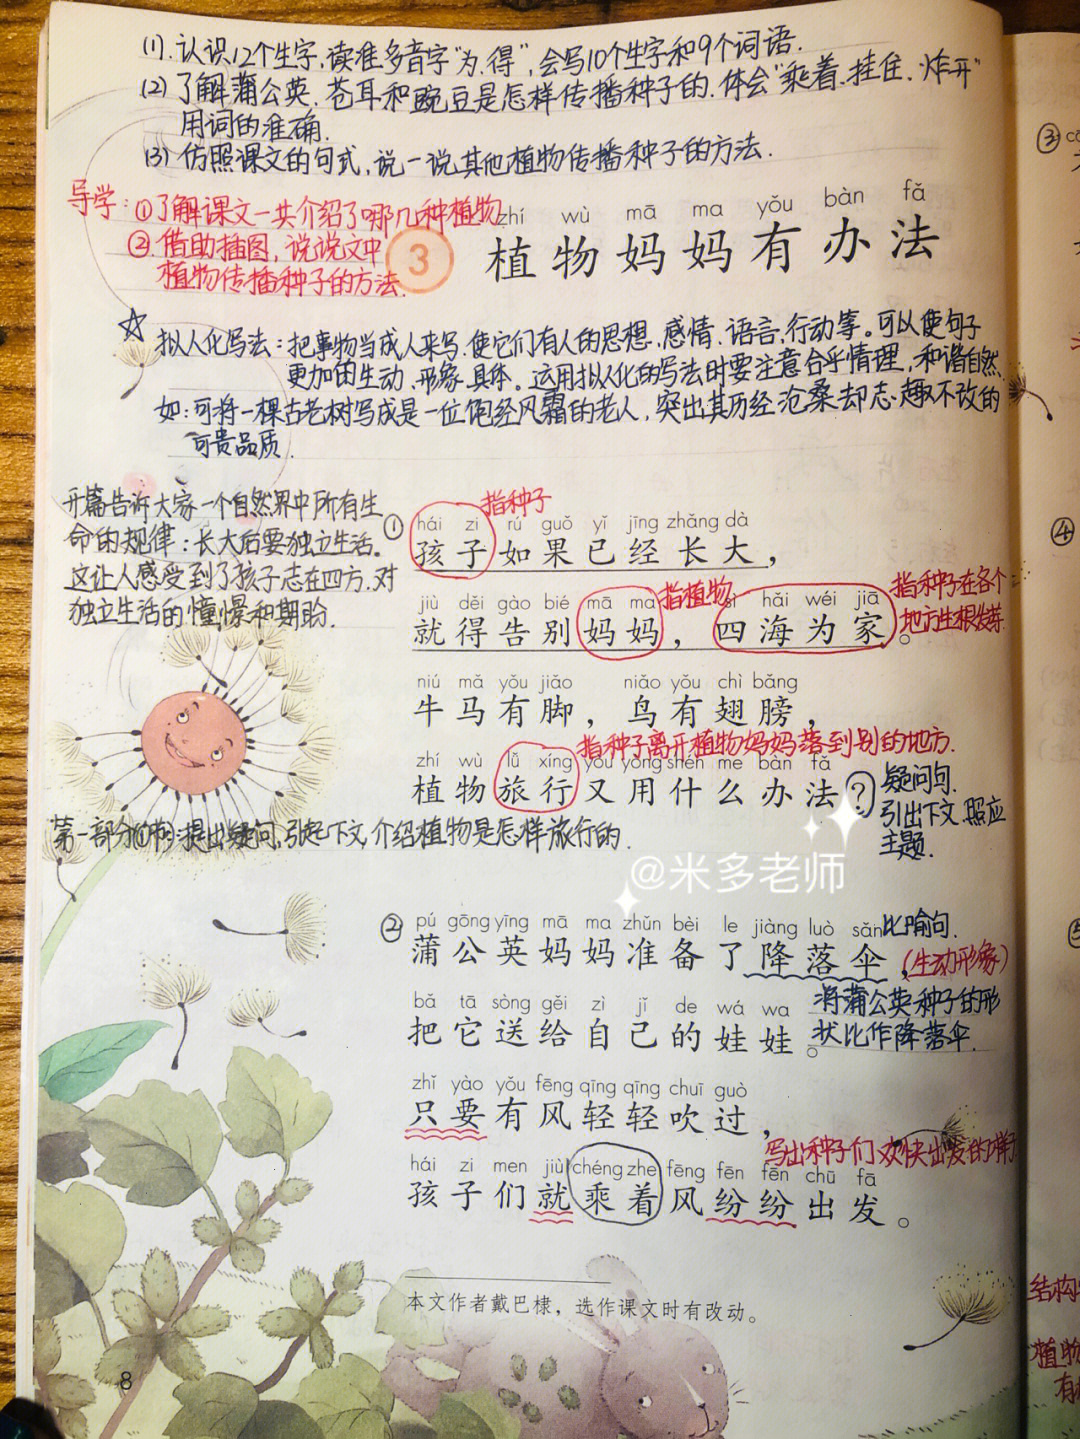 (1).认识12个生字.读准多音字"为.得",会写10个生字和9个词语.
(2)了解蒲公英.苍耳和豌豆是怎样传播种子的.体会"乘着.挂住.炸开"
用词的准确.
(3)仿照课文的句式,说一说其他植物传播种子的方法.
导学:①了解课文一共介绍了哪几种植物
②.借助插图,说说文中
植物传播种子的方法.
3
zhí wù mā ma yǒu bàn fǎ
植物妈妈有办法
☆拟人化写法:把事物当成人来写.使它们有人的思想、感情、语言、行动等。可以使句子
更加的生动、形象.具体。运用拟人化的写法时要注意合乎情理,和谐自然.
如:可将一棵古老树写成是一位饱经风霜的老人,突出其历经沧桑却志趣不改的
可贵品质.
开篇告诉大家一个自然界中所有生
命的规律:长大后要独立生活。
这让人感受到了孩子志在四方.对
独立生活的憧憬和期盼.
①
指种子
hái zi rú guǒ yǐ jīng zhǎng dà
孩子如果已经长大,
指植物
指种子在各个
地方生根发芽.
jiù děi gào bié mā ma sì hǎi wéi jiā
就得告别妈妈,四海为家。
niú mǎ yǒu jiǎo niǎo yǒu chì bǎng
牛马有脚,鸟有翅膀,
指种子离开植物妈妈落到别的地方.
zhí wù lǚ xíng yòu yòng shén me bàn fǎ
植物旅行又用什么办法?
疑问句.
引出下文.照应
主题.
第一部分:提出疑问,引起下文.介绍植物是怎样旅行的.
@米多老师
②
pú gōng yīng mā ma zhǔn bèi le jiàng luò sǎn
蒲公英妈妈准备了降落伞,
比喻句.
(生动形象)
将蒲公英种子的形
状比作降落伞.
bǎ tā sòng gěi zì jǐ de wá wa
把它送给自己的娃娃。
zhǐ yào yǒu fēng qīng qīng chuī guò
只要有风轻轻吹过,
写出种子们欢快出发的样子
hái zi men jiù chéng zhe fēng fēn fēn chū fā
孩子们就乘着风纷纷出发。
本文作者戴巴棣,选作课文时有改动。
8
③
④
结构
植物
有